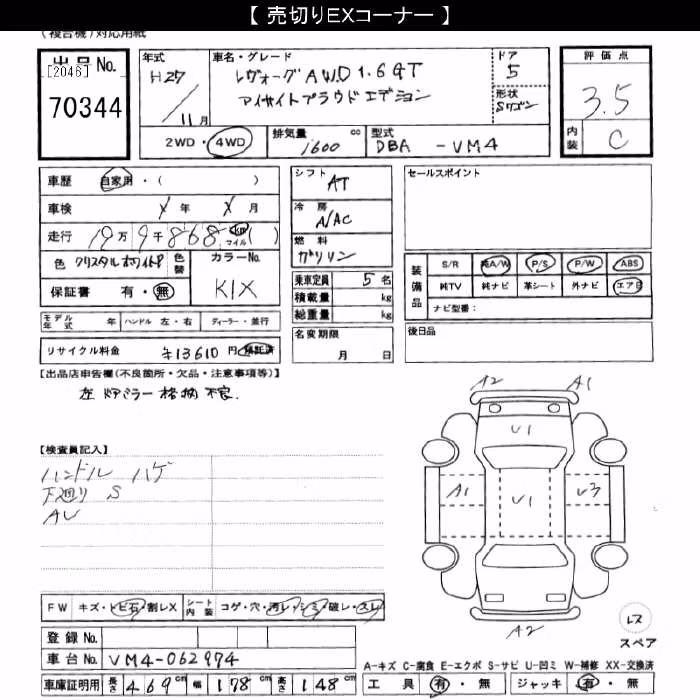 【 売切りEXコーナー 】
(複合機)対応用紙
出品No. [2046] 70344
年式 H27/11月
車名・グレード レヴォーグ AWD 1.6GT
アイサイトプラウドエデション
ドア 5
形状 Sワゴン
2WD・4WD 排気量 1600 cc 型式 DBA -VM4
評価点 3.5
内装 C
車歴 自家用・( )
車検 X年 X月
走行 19万9千868 km マイル ( )
色 クリスタルホワイトP 色替
カラーNo. K1X
保証書 有・無
モデル年式 年 ハンドル 左・右 ディーラー・並行
リサイクル料金 ¥13610円 預託済
シフト AT
冷房 A/AC
燃料 ガソリン
乗車定員 5名
積載量 kg
総重量 kg
名変期限
月 日
セールスポイント
装備品 S/R 純A/W P/S P/W ABS
純TV 純ナビ 革シート 外ナビ エアB
ナビ型番：
後日品
【出品店申告欄(不良箇所・欠品・注意事項等)】
左ドアミラー格納不良.
【検査員記入】
ハンドル ハゲ
下廻り S
AU
A2 A1
U1
A1 U1 U3
A2
レス
スペア
FW キズ・トビ石・割レX シート内装 コゲ・穴・汚レ・シミ・破レ・スレ
登録No.
車台No. VM4-062974
車庫証明用 長さ 469cm 幅 178cm 高さ 148cm
A-キズ C-腐食 E-エクボ S-サビ U-凹ミ W-補修 XX-交換済
工具 有・無 ジャッキ 有・無